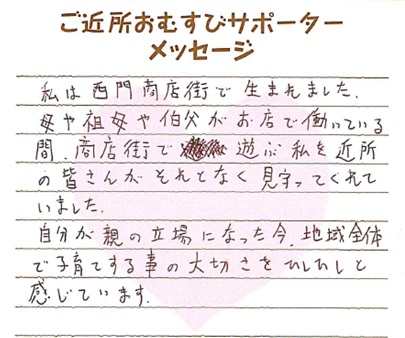 ご近所おむすびサポーター
メッセージ
私は西門商店街で生まれました.
母や祖母や伯父がお店で働いている
間.商店街で遊ぶ私を近所
の皆さんがそれとなく見守ってくれて
いました.
自分が親の立場になった今.地域全体
で子育てする事の大切さをひしひしと
感じています.